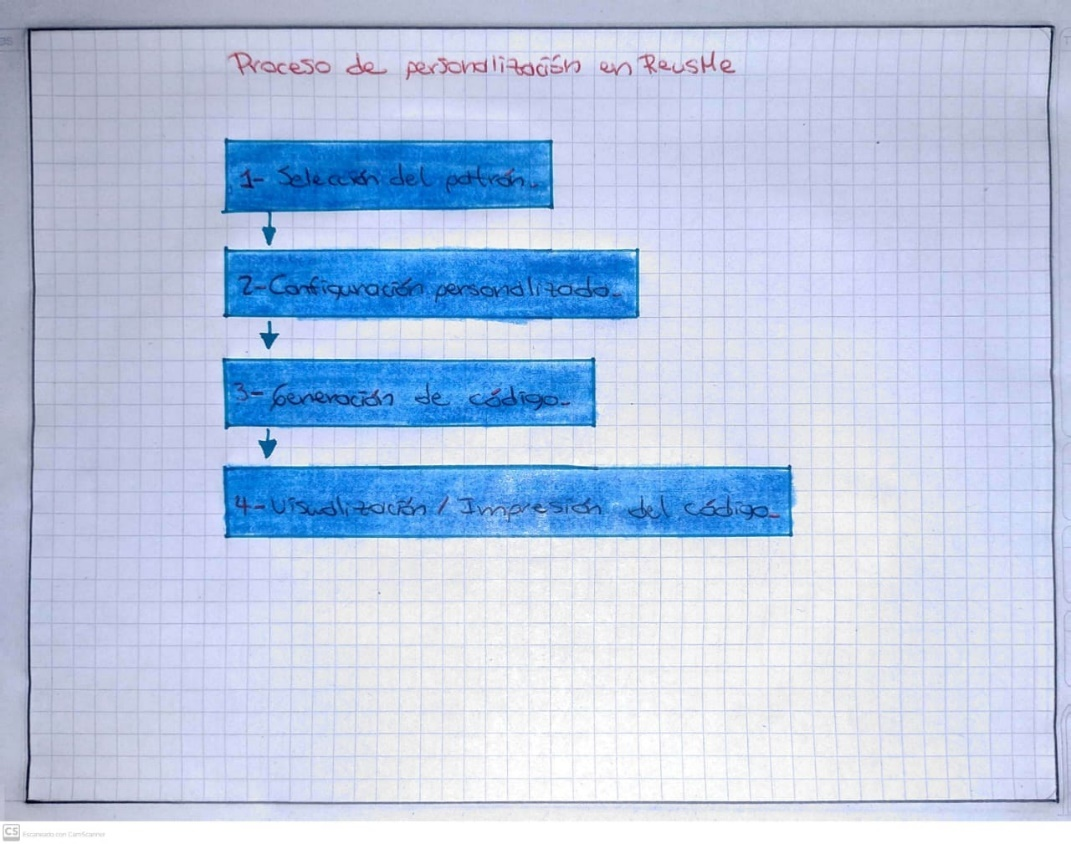 Proceso de personalización en ReusMe
1- Selección del patrón.
2- Configuración personalizada.
3- Generación de código.
4- Visualización / Impresión del código.
CS Escaneado con CamScanner